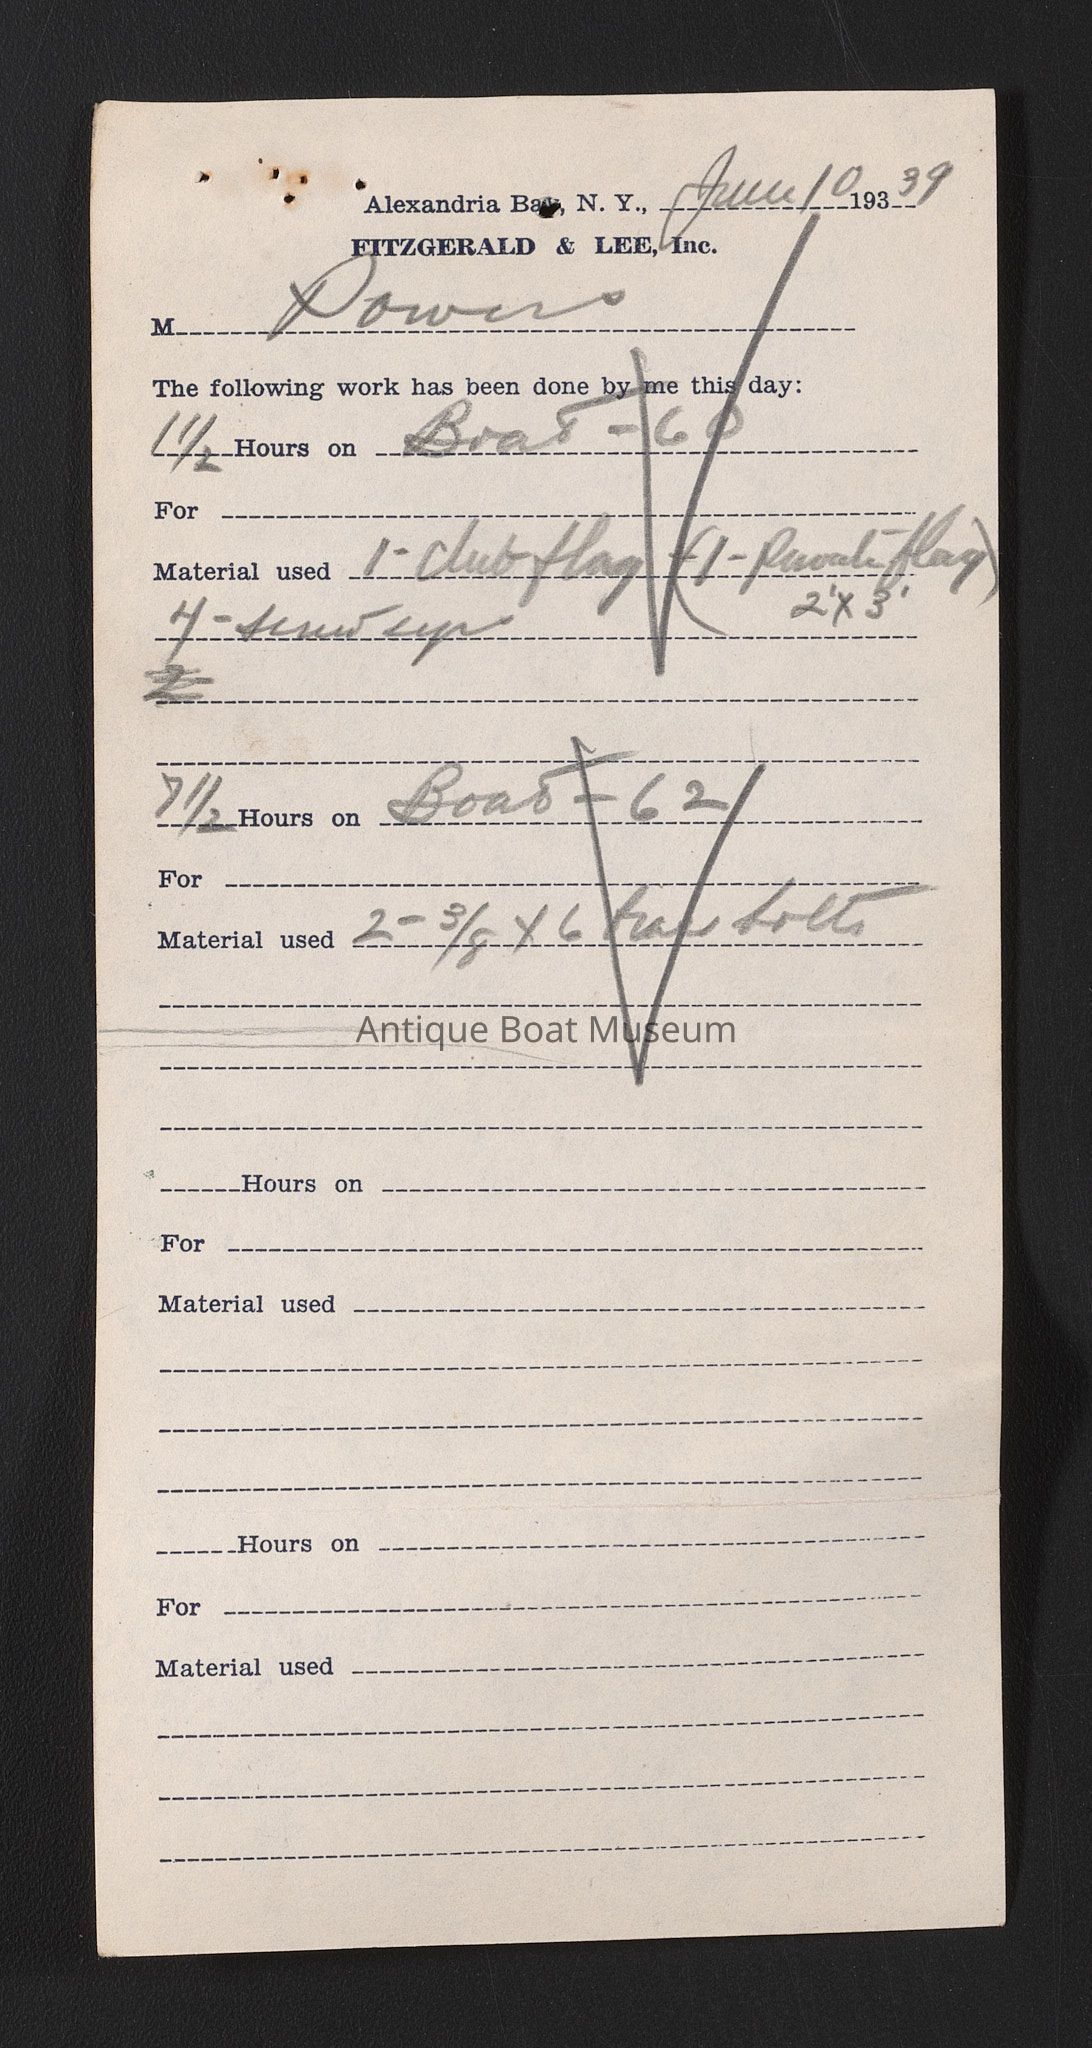 Alexandria Bay, N. Y., June 10 193 39
FITZGERALD & LEE, Inc.
M Powers
The following work has been done by me this day:
1 1/2 Hours on Boat - 60
For
Material used 1 - club flag - (1 - Private flag)
4 - screw eyes 2' x 3'
2
7 1/2 Hours on Boat - 62
For
Material used 2 - 3/8 x 6 bolts
Antique Boat Museum
Hours on
For
Material used
Hours on
For
Material used